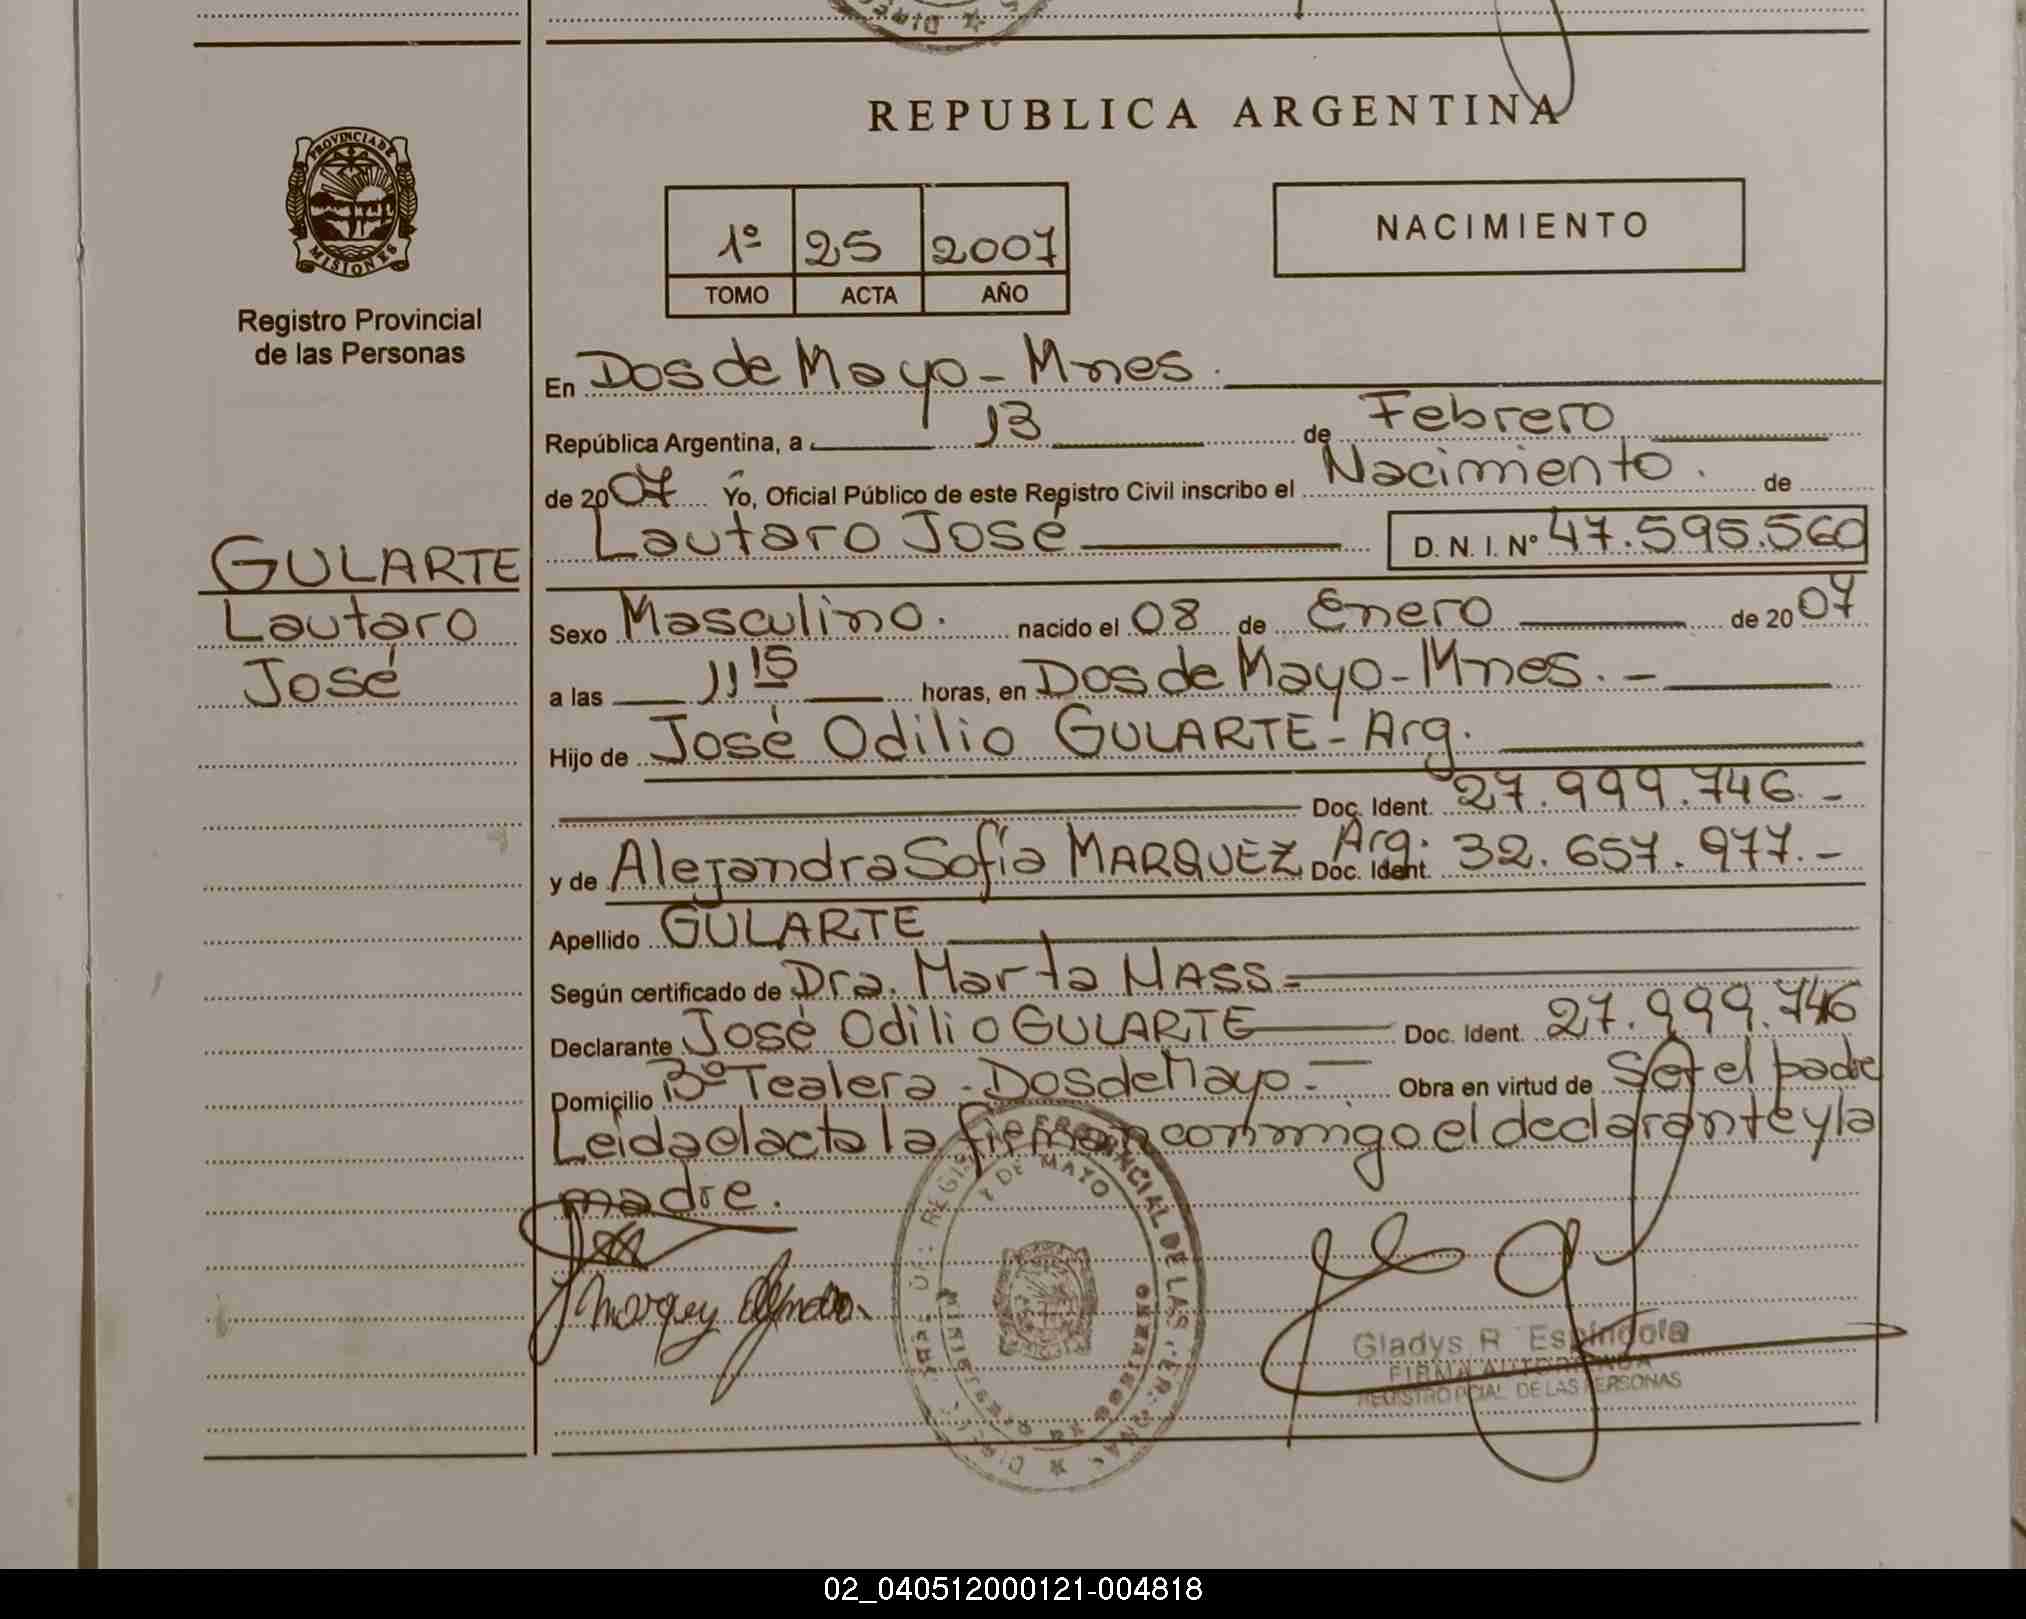 REPUBLICA ARGENTINA
PROVINCIA DE
MISIONES
Registro Provincial
de las Personas
1º 25 2007
TOMO ACTA AÑO
NACIMIENTO
En Dos de Mayo - Mnes.
República Argentina, a 13 de Febrero
de 2007 Yo, Oficial Público de este Registro Civil inscribo el Nacimiento. de
Lautaro José D. N. I. Nº 47.595.560
GULARTE
Lautaro
José
Sexo Masculino. nacido el 08 de Enero de 2007
a las 11 15 horas, en Dos de Mayo - Mnes. -
Hijo de José Odilio GULARTE - Arg.
Doc. Ident. 27.999.746. -
y de Alejandra Sofía MARQUEZ Arg. Doc. Ident. 32.657.977. -
Apellido GULARTE
Según certificado de Dra. Marta HASS
Declarante José Odilio GULARTE Doc. Ident. 27.999.746
Domicilio 3º Tealera - Dos de Mayo. - Obra en virtud de Ser el padre
Leida el acta la firman conmigo el declarante y la
madre.
Marquez
Gladys R. Espindola
FIRMA AUTORIZADA
REGISTRO PCIAL. DE LAS PERSONAS
02_040512000121-004818